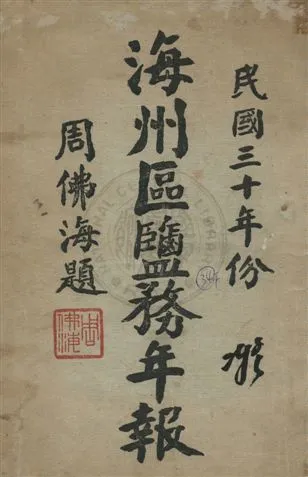 民國三十年份
海州區鹽務年報
周佛海題
周佛海
344